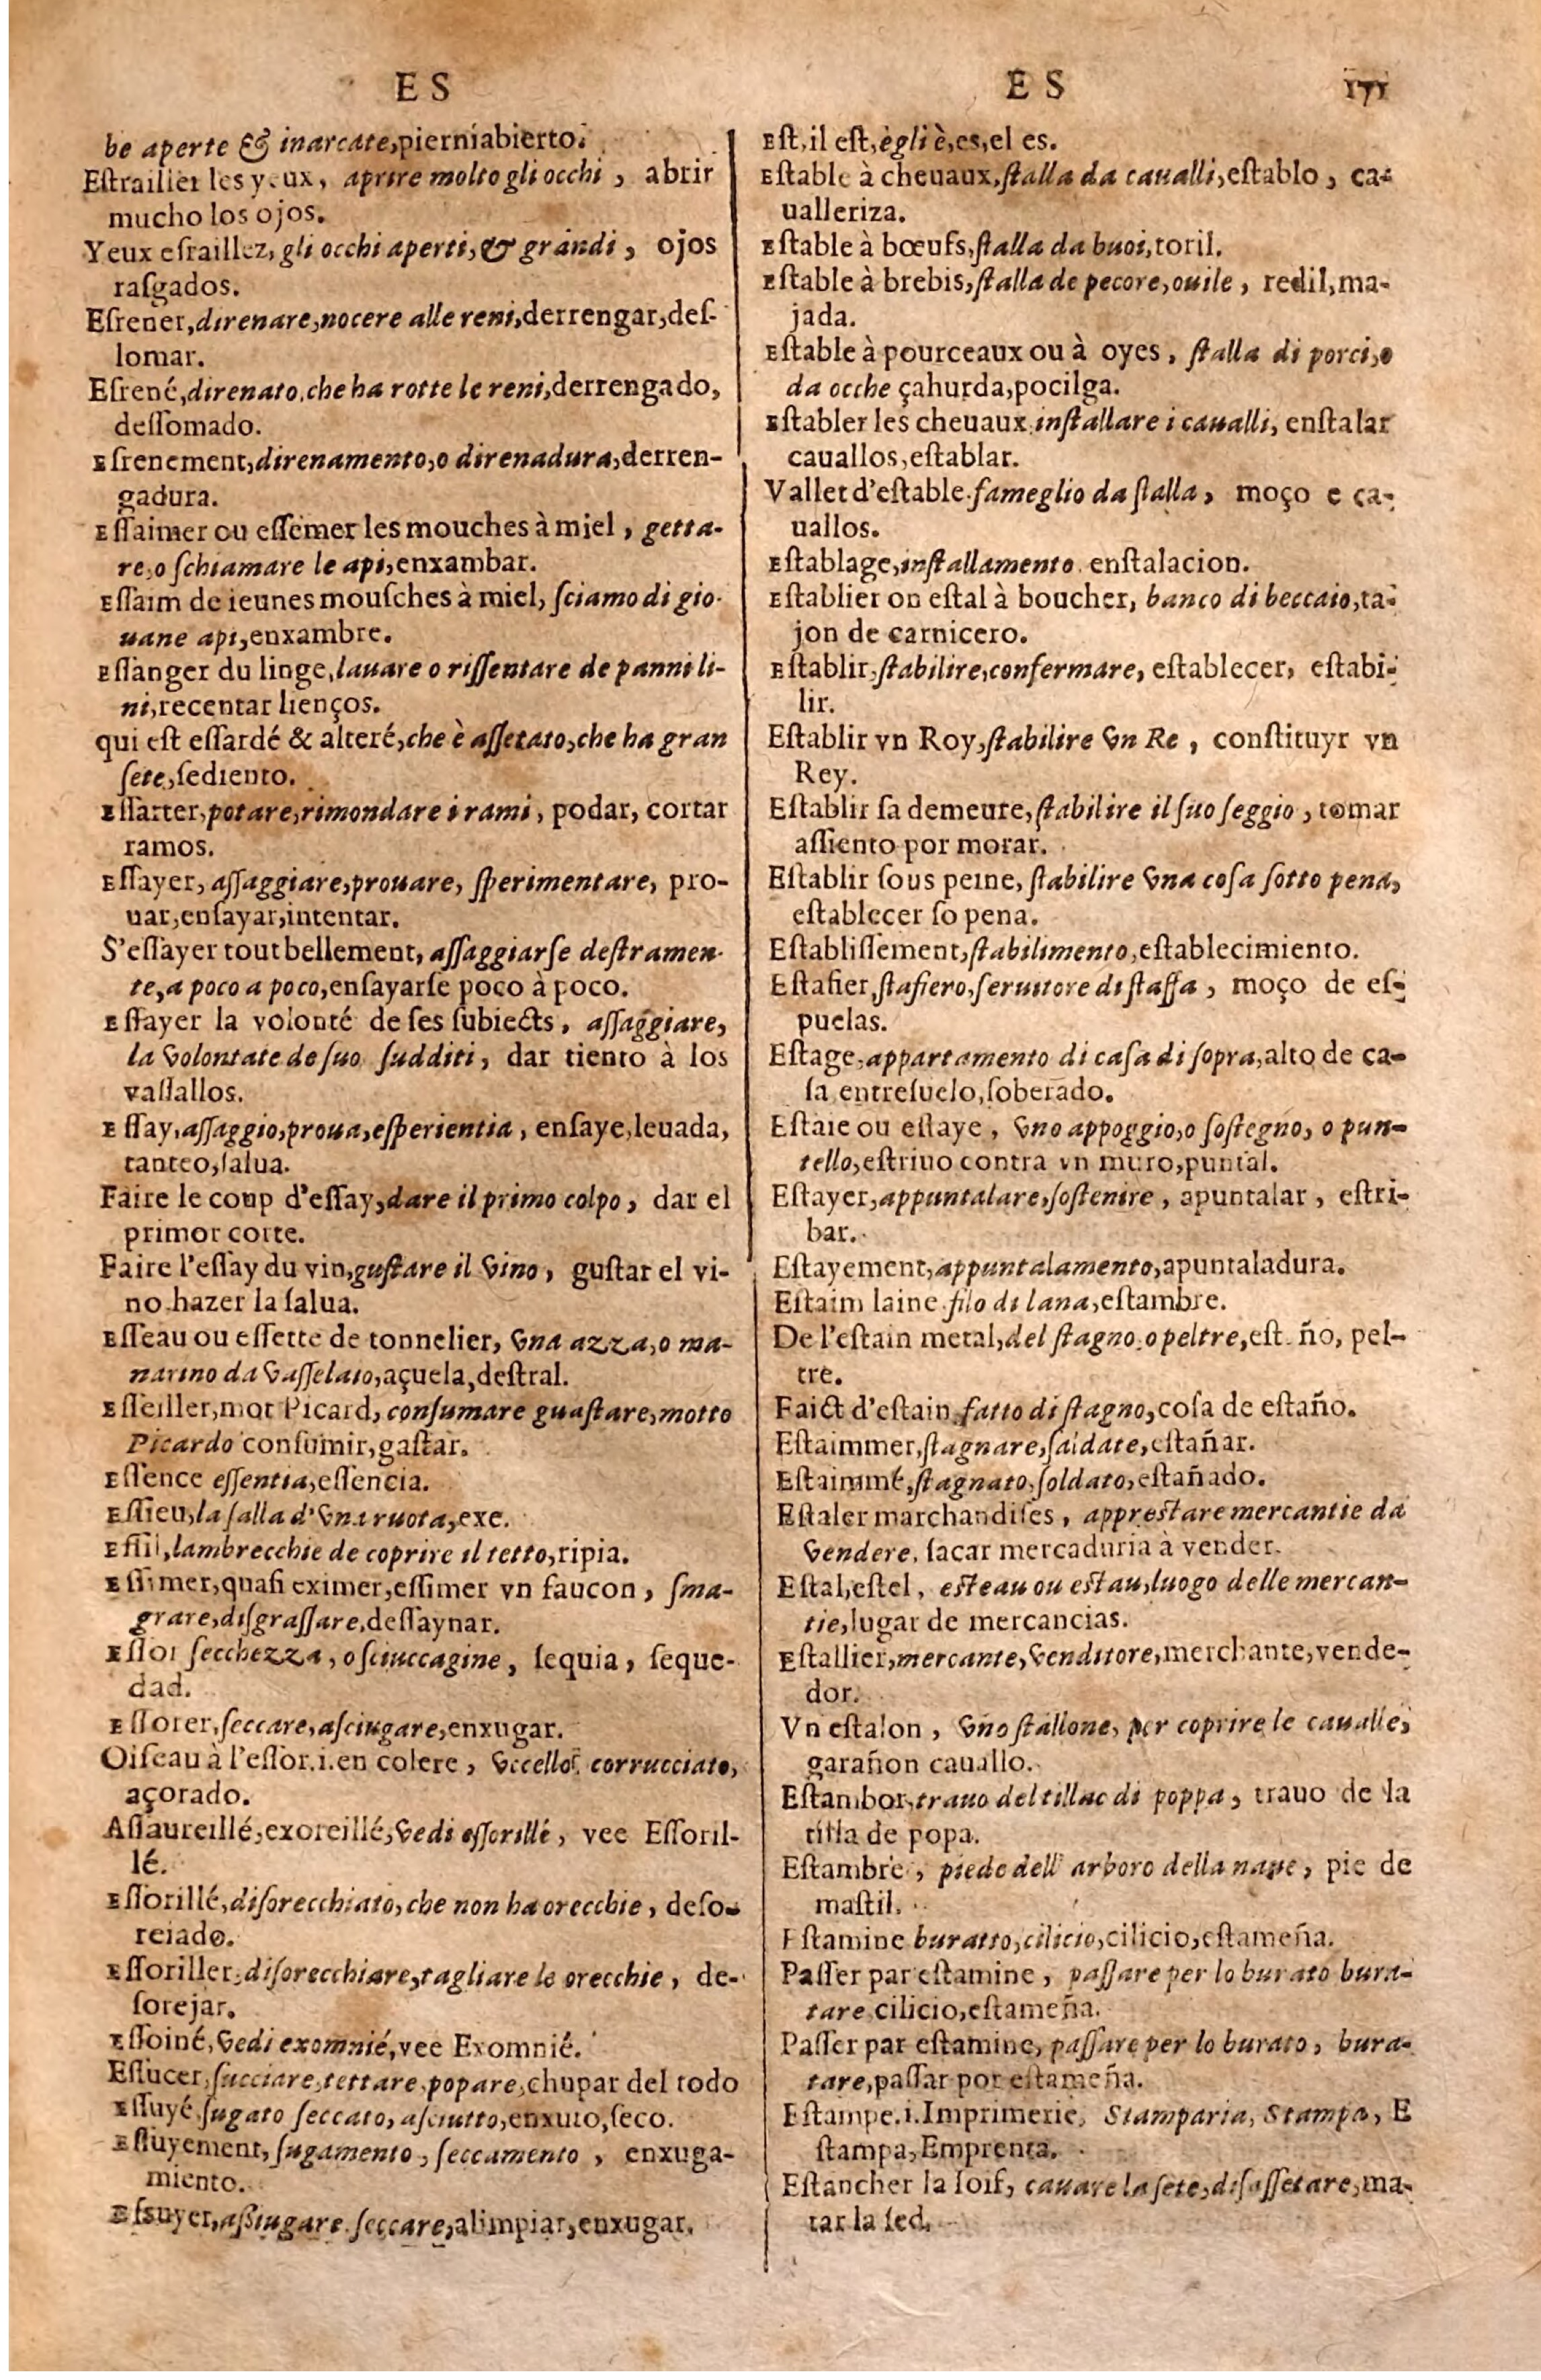 E S
be aperte & inarcate,pierniabierto.
Eſtrailler les yeux, aprire molto gli occhi , abrir
mucho los ojos.
Yeux eſraillez, gli occhi aperti,& grandi , ojos
raſgados.
Eſrener,direnare,nocere alle reni,derrengar,deſ-
lomar.
Eſrené,direnato,che ha rotte le reni,derrengado,
deſſomado.
Eſrenement,direnamento,o direnadura,derren-
gadura.
Eſſaimer ou eſſemer les mouches à miel , getta-
re,o ſchiamare le api,enxambar.
Eſſaim de ieunes mouſches à miel, ſciamo di gio-
uane api,enxambre.
Eſſanger du linge,lauare o riſſentare de panni li-
ni,recentar lienços.
qui est eſſardé & alteré,che è aſſetato,che ha gran
ſete,ſediento.
Eſſarter,potare,rimondare i rami , podar, cortar
ramos.
Eſſayer, aſſaggiare,prouare, ſperimentare, pro-
uar,enſayar,intentar.
S'eſſayer tout bellement, aſſaggiarſe deſtramen-
te,a poco a poco,enſayarſe poco à poco.
Eſſayer la volonté de ſes ſubiects , aſſaggiare,
la volontate de ſuo ſudditi , dar tiento à los
vaſſallos.
Eſſay,aſſaggio,proua,eſperientia , enſaye,leuada,
tanteo,ſalua.
Faire le coup d'eſſay,dare il primo colpo , dar el
primor corte.
Faire l'eſſay du vin,guſtare il vino , guſtar el vi-
no hazer la ſalua.
Eſſeau ou eſſette de tonnelier, vna azza,o ma-
narino da vaſſelaio,açuela,deſtral.
Eſſeiller,mot Picard, conſumare guaſtare,motto
Picardo conſumir,gaſtar.
Eſſence eſſentia,eſſencia.
Eſſieu,la ſalla d'vna ruota,exe.
Eſſil,lambrecchie de coprire il tetto,ripia.
Eſſimer,quaſi eximer,eſſimer vn faucon , ſma-
grare,diſgraſſare,deſſaynar.
Eſſor ſecchezza , o ſciuccagine , ſequia , ſeque-
dad.
Eſſorer,ſeccare,aſciugare,enxugar.
Oiſeau à l'eſſor.i.en colere , vccello corrucciato,
açorado.
Aſſaureillé,exoreillé,vedi eſſorillé , vee Eſſoril-
lé.
Eſſorillé,diſorecchiato,che non ha orecchie , deſo-
reiado.
Eſſoriller,diſorecchiare,tagliare le orecchie , de-
ſorejar.
Eſſoiné,vedi exomnié,vee Exomnié.
Eſſucer,ſucciare,tettare,popare,chupar del todo
Eſſuyé ſugato ſeccato, aſciutto,enxuto,ſeco.
Eſſuyement,ſugamento , ſeccamento , enxuga-
miento.
Eſsuyer,aſsiugare ſeccare,alimpiar,enxugar.
E S 171
Eſt,il eſt,egli è,es,el es.
Eſtable à cheuaux,ſtalla da caualli,eſtablo , ca-
ualleriza.
Eſtable à bœufs,ſtalla da buoi,toril.
Eſtable à brebis,ſtalla de pecore,ouile , redil,ma-
jada.
Eſtable à pourceaux ou à oyes , ſtalla di porci,o
da ocche çahurda,pocilga.
Eſtabler les cheuaux,inſtallare i caualli, enſtalar
cauallos,eſtablar.
Vallet d'eſtable.fameglio da ſtalla , moço e ca-
uallos.
Eſtablage,inſtallamento enſtalacion.
Eſtablier on eſtal à boucher, banco di beccaio,ta-
jon de carnicero.
Eſtablir,ſtabilire,confermare, eſtablecer, eſtabi-
lir.
Eſtablir vn Roy,ſtabilire vn Re , conſtituyr vn
Rey.
Eſtablir ſa demeure,ſtabilire il ſuo ſeggio , tomar
aſſiento por morar.
Eſtablir ſous peine, ſtabilire vna coſa ſotto pena,
eſtablecer ſo pena.
Eſtabliſſement,ſtabilimento,eſtablecimiento.
Eſtafier,ſtafiero,ſeruitore di ſtaffa , moço de eſ-
puelas.
Eſtage,appartamento di caſa di ſopra,alto de ca-
ſa entreſuelo,ſoberado.
Eſtaie ou eſtaye , vno appoggio,o ſoſtegno, o pun-
tello,eſtriuo contra vn muro,puntal.
Eſtayer,appuntalare,ſoſtenire , apuntalar , eſtri-
bar.
Eſtayement,appuntalamento,apuntaladura.
Eſtaim laine filo di lana,eſtambre.
De l'eſtain metal,del ſtagno o peltre,eſt ño, pel-
tre.
Faict d'eſtain fatto di ſtagno,coſa de eſtaño.
Eſtaimmer,ſtagnare,ſaldate,eſtañar.
Eſtaimmé,ſtagnato,ſoldato,eſtañado.
Eſtaler marchandiſes , appreſtare mercantie da
vendere, ſacar mercaduria à vender.
Eſtal,eſtel , eſteau ou eſtau,luogo delle mercan-
tie,lugar de mercancias.
Eſtallier,mercante,venditore,merchante,vende-
dor.
Vn eſtalon , vno ſtallone, per coprire le caualle,
garañon cauallo.
Eſtambor,trauo del tillac di poppa , trauo de la
tilla de popa.
Eſtambre , piede dell arboro della naue , pie de
maſtil.
Eſtamine buratto,cilicio,cilicio,eſtameña.
Paſſer par eſtamine , paſſare per lo burato bura-
tare cilicio,eſtameña.
Paſſer par eſtamine, paſſare per lo burato , bura-
tare,paſſar por eſtameña.
Eſtampe.i.Imprimerie, Stamparia, Stampa, E
ſtampa,Emprenta.
Eſtancher la ſoif, cauare la ſete,diſaſſetare,ma-
tar la ſed.